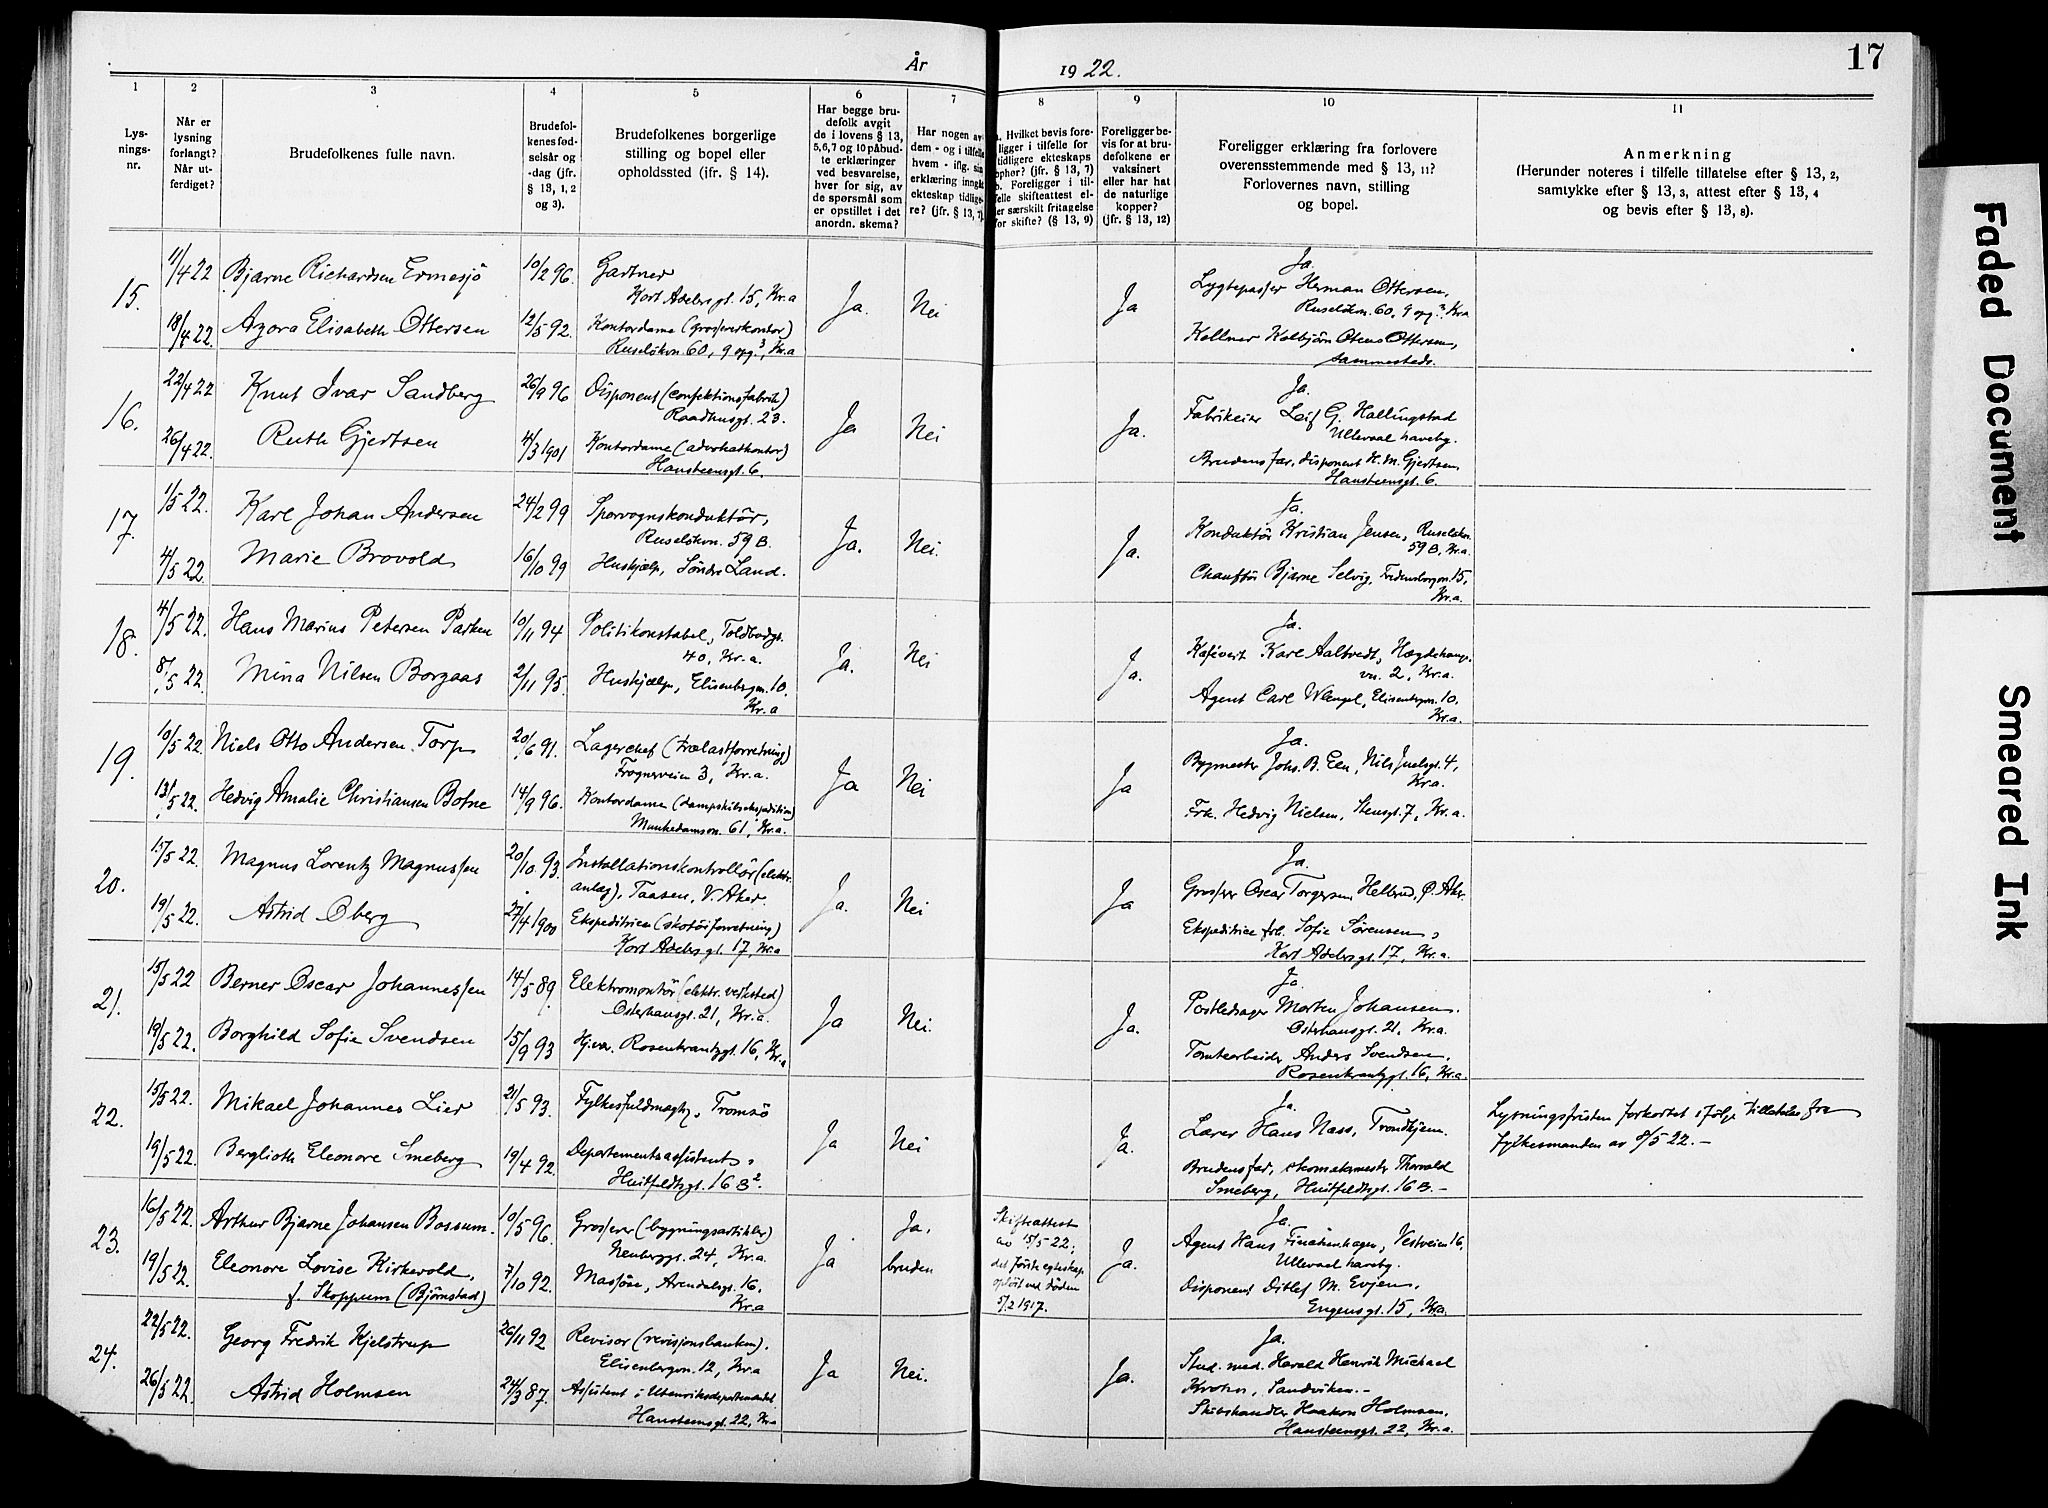 År 1922.
17
1
2
3
4
5
6
7
8
9
10
11
Lys-
nings-
nr.
Når er
lysning
forlangt?
Når ut-
ferdiget?
Brudefolkenes fulle navn.
Brudefol-
kenes fød-
selsår og
-dag (jfr.
§ 13, 1, 2
og 3).
Brudefolkenes borgerlige
stilling og bopel eller
opholdssted (jfr. § 14).
Har begge bru-
defolk avgit
de i lovens § 13,
5,6,7 og 10 påbud-
te erklæringer
ved besvarelse,
hver for sig, av
de spørsmål som
er opstillet i det
anordn. skema?
Har nogen av
dem - og i tilfelle
hvem - iflg. sin
erklæring inngå
ekteskap tidlige-
re? (jfr. § 13, 7)
a. Hvilket bevis fore-
ligger i tilfelle for
tidligere ekteskaps
ophør? (jfr. § 13, 7)
b. Foreligger i til-
felle skifteattest el-
ler særskilt fritagelse
for skifte? (§ 13, 9)
Foreligger be-
vis for at bru-
defolkene er
vaksinert
eller har hat
de naturlige
kopper?
(jfr. § 13, 12)
Foreligger erklæring fra forlovere
overensstemmende med § 13, 11?
Forlovernes navn, stilling
og bopel.
Anmerkning
(Herunder noteres i tilfelle tillatelse efter § 13, 2,
samtykke efter § 13, 3, attest efter § 13, 4
og bevis efter § 13, 8).
15.
11/4 22
Bjarne Richardsen Ermesjö
10/2 96.
Gartner
Kort Adelersgt. 15, Kr.a
18/4 22.
Azora Elisabeth Ottersen
12/5 92.
Kontordame (grosserer kontor)
Ruseløkvn. 60, 9 opg. 3, Kr.a
Ja.
Nei
Ja
Ja.
Lygtepasser Herman Ottersen,
Ruseløkvn. 60, 9 opg. 3, Kr.a
Kellner Kolbjörn Otens Ottersen,
sammesteds.
16.
22/4 22
Knut Ivar Sandberg
26/9 96
Disponent (confektionsfabrik)
Raadhusgt. 23.
26/4 22.
Ruth Gjertsen
4/3 1901
Kontordame (advokatkontor)
Hansteensgt. 6.
Ja
Nei
Ja.
Ja.
Fabrikeier Leif G. Hallingstad
Ullevaal haveby.
Brudens far, disponent H. M. Gjertsen,
Hansteensgt. 6.
17.
1/5 22.
Karl Johan Andersen
24/2 99
Sporvognskonduktör,
Ruseløkvn. 59 B.
4/5 22.
Marie Brovold
16/10 99
Hushjælp, Söndre Land.
Ja.
Nei.
Ja.
Ja.
Konduktör Kristian Jensen, Ruseløkvn.
59 B, Kr.a.
Chaufför Bjarne Selvig, Fredensborgvn. 15,
Kr.a.
18.
4/5 22.
Hans Marius Petersen Parken
10/11 94
Politikonstabel, Toldbodgt.
40, Kr.a.
8/5 22.
Mina Nilsen Borgaas
2/11 95.
Hushjælp, Elisenbergvn. 10.
Kr.a
Ja.
Nei
Ja.
Ja.
Kafévert Karl Aalbredt, Hægdehaugs-
vn. 2, Kr.a.
Agent Carl Wangel, Elisenbergvn. 10,
Kr.a.
19.
10/5 22.
Niels Otto Andersen Torp
20/6 91.
Lagerchef (trælastforretning)
Frognerveien 3, Kr.a.
13/5 22.
Hedvig Amalie Christiansen Bofne
14/9 96.
Kontordame (dampskibsekspedition)
Munkedamsvn. 61, Kr.a.
Ja
Nei
Ja
Ja.
Bygmester Johs. B. Een, Nils Juelsgt. 4,
Kr.a.
Frk. Hedvig Nielsen, Stensgt. 7, Kr.a.
20.
15/5 22.
Magnus Lorentz Magnussen
20/10 93.
Installationskontrollör (elektr.
anlæg), Taasen, V. Aker.
19/5 22.
Astrid Øberg
27/4 1900
Ekspeditrice (skotöiforretning)
Kort Adelersgt. 17, Kr.a
Ja.
Nei
Ja
Ja.
Grosserer Oscar Torgersen Hellerud, Ø. Aker.
Ekspeditrice frk. Sofie Sörensen,
Kort Adelersgt. 17, Kr.a.
21.
15/5 22
Berner Oscar Johannessen
14/5 89.
Elektromontör (elektr. verksted)
Osterhausgt. 21, Kr.a.
19/5 22.
Borghild Sofie Svendsen
15/9 93
Hj.vær. Rosenkrantzgt. 16, Kr.a
Ja
Nei.
Ja.
Ja.
Postledsager Morten Johansen.
Osterhausgt. 21, Kr.a.
Tomtearbeider Anders Svendsen,
Rosenkrantzgt. 16, Kr.a.
22.
15/5 22.
Mikael Johannes Lier
21/5 93.
Fylkesfuldmægtig, Tromsö
19/5 22.
Berglioth Eleonore Smeberg
19/4 92.
Departementsassistent,
Huitfeldtsgt. 16 B 2.
Ja
Nei
Ja.
Ja.
Lærer Hans Næss, Trondhjem.
Brudens far, skomakermester Thorvald
Smeberg, Huitfeldtsgt. 16 B. –
Lysningsfristen forkortet ifölge tillatelse fra
fylkesmanden av 8/5 22. –
23.
16/5 22.
Arthur Bjarne Johansen Bossum.
10/5 96.
Grosserer (bygningsartikler)
Neuberggt. 24, Kr.a.
19/5 22.
Eleonore Lovise Kirkevold,
f. Skoppum (Björnstad)
7/10 92.
Massöse, Arendalsgt. 16,
Kr.a
Ja
Ja,
bruden
Skifteattest
av 15/5 22;
det förste egteskap
oplöst ved döden
5/2 1917.
Ja.
Ja.
Agent Hans Finckenhagen, Vestveien 16,
Ullevaal haveby.
Disponent Ditlef M. Evjen,
Eugensgt. 15, Kr.a.
24.
22/5 22.
Georg Fredrik Kjelstrup
26/11 92
Revisor (revisjonsbanken).
Elisenbergvn. 12, Kr.a
26/5 22
Astrid Holmsen
24/3 87.
Assistent i Utenriksdepartementet
Hansteensgt. 22, Kr.a
Ja
Nei.
Ja.
Ja.
Stud. med. Harald Henrik Michael
Krohn, Sandviken. –
Skibshandler Haakon Holmsen,
Hansteensgt. 22, Kr.a.
Faded Document
Smeared Ink